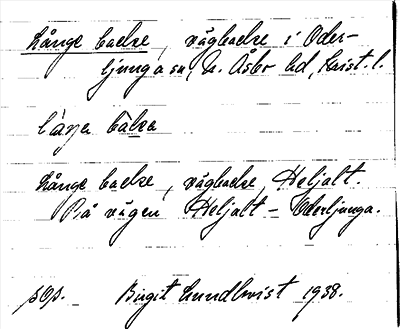 Långe backe, vägbacke i Oder-
ljunga sn, N. Åsbo hd, Krist. l.
Långe backe, vägbacke, Heljalt.
På vägen Heljalt - Oderljunga.
Birgit Lundkvist 1938.